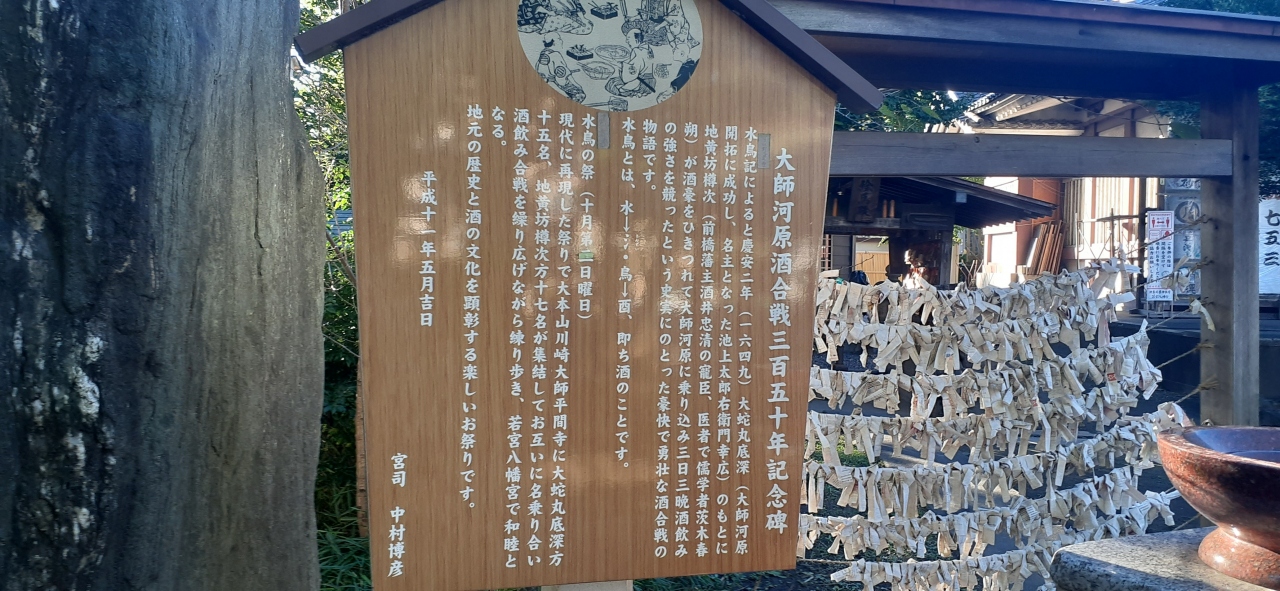 大師河原酒合戦三百五十年記念碑
水鳥記によると慶安二年（一六四九）大蛇丸底深（大師河原
開拓に成功し、名主となった池上太郎右衛門幸広）のもとに
地黄坊樽次（前橋藩主酒井忠清の寵臣、医者で儒学者茨木春
朔）が酒豪をひきつれて大師河原に乗り込み三日三晩酒飲み
の強さを競ったという史実にのとった豪快で勇壮な酒合戦の
物語です。
水鳥とは、水→氵・鳥→酉、即ち酒のことです。
水鳥の祭（十月第三日曜日）
現代に再現した祭りで大本山川崎大師平間寺に大蛇丸底深方
十五名、地黄坊樽次方十七名が集結してお互いに名乗り合い
酒飲み合戦を繰り広げながら練り歩き、若宮八幡宮で和睦と
なる。
地元の歴史と酒の文化を顕彰する楽しいお祭りです。
平成十一年五月吉日
宮司　中村博彦
七五三